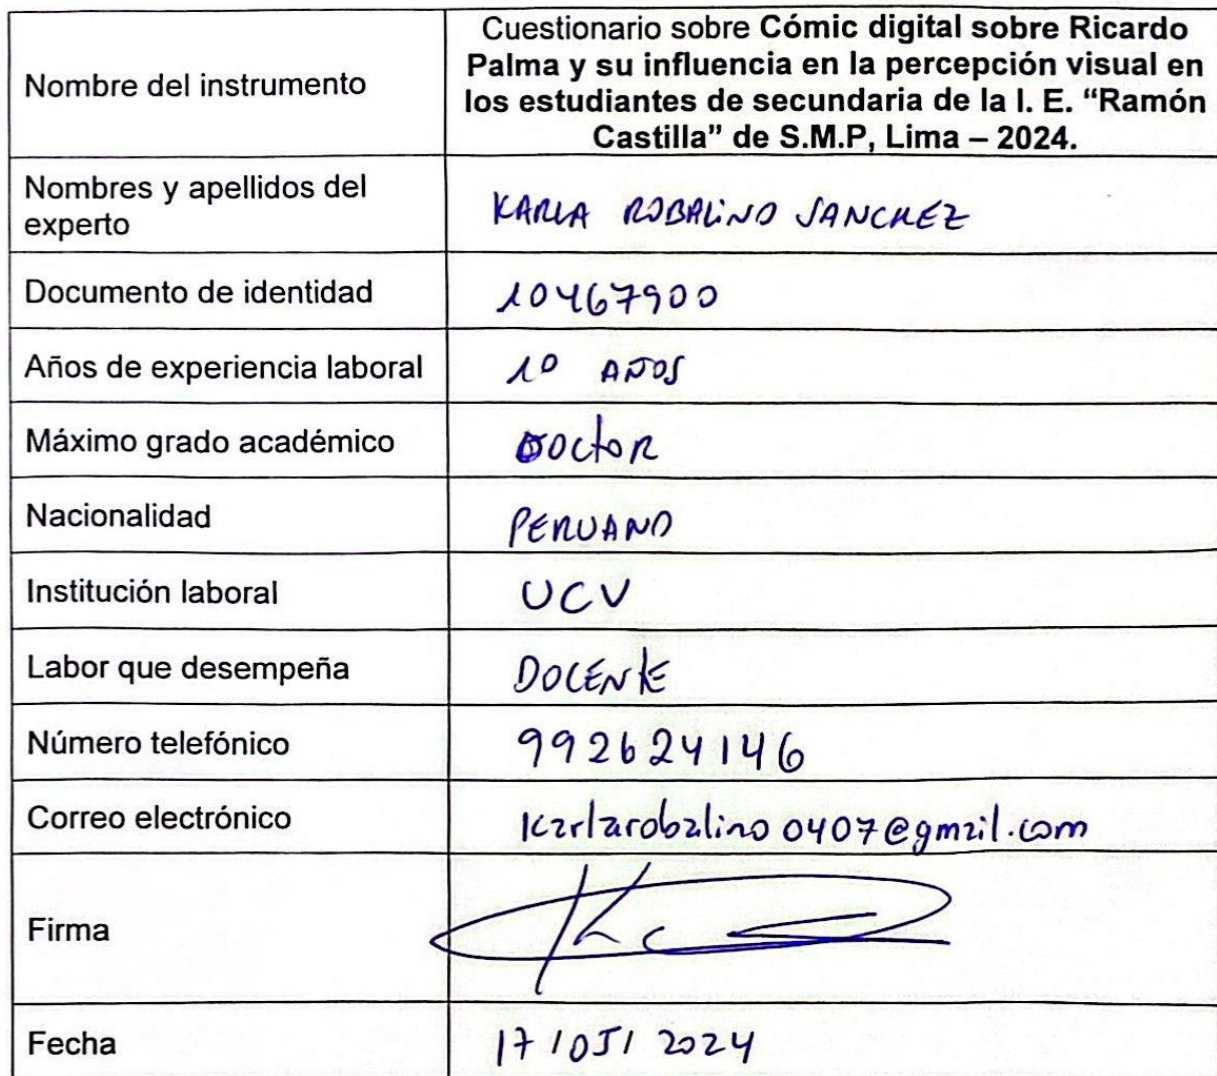 Nombre del instrumento
Cuestionario sobre Cómic digital sobre Ricardo
Palma y su influencia en la percepción visual en
los estudiantes de secundaria de la I. E. “Ramón
Castilla” de S.M.P, Lima – 2024.
Nombres y apellidos del
experto
KARLA ROBALINO SANCHEZ
Documento de identidad
10467900
Años de experiencia laboral
10 AÑOS
Máximo grado académico
DOCtoR
Nacionalidad
PERUANO
Institución laboral
UCV
Labor que desempeña
DOCENtE
Número telefónico
992624146
Correo electrónico
Karlarobalino0407@gmail.com
Firma
Fecha
17/05/2024